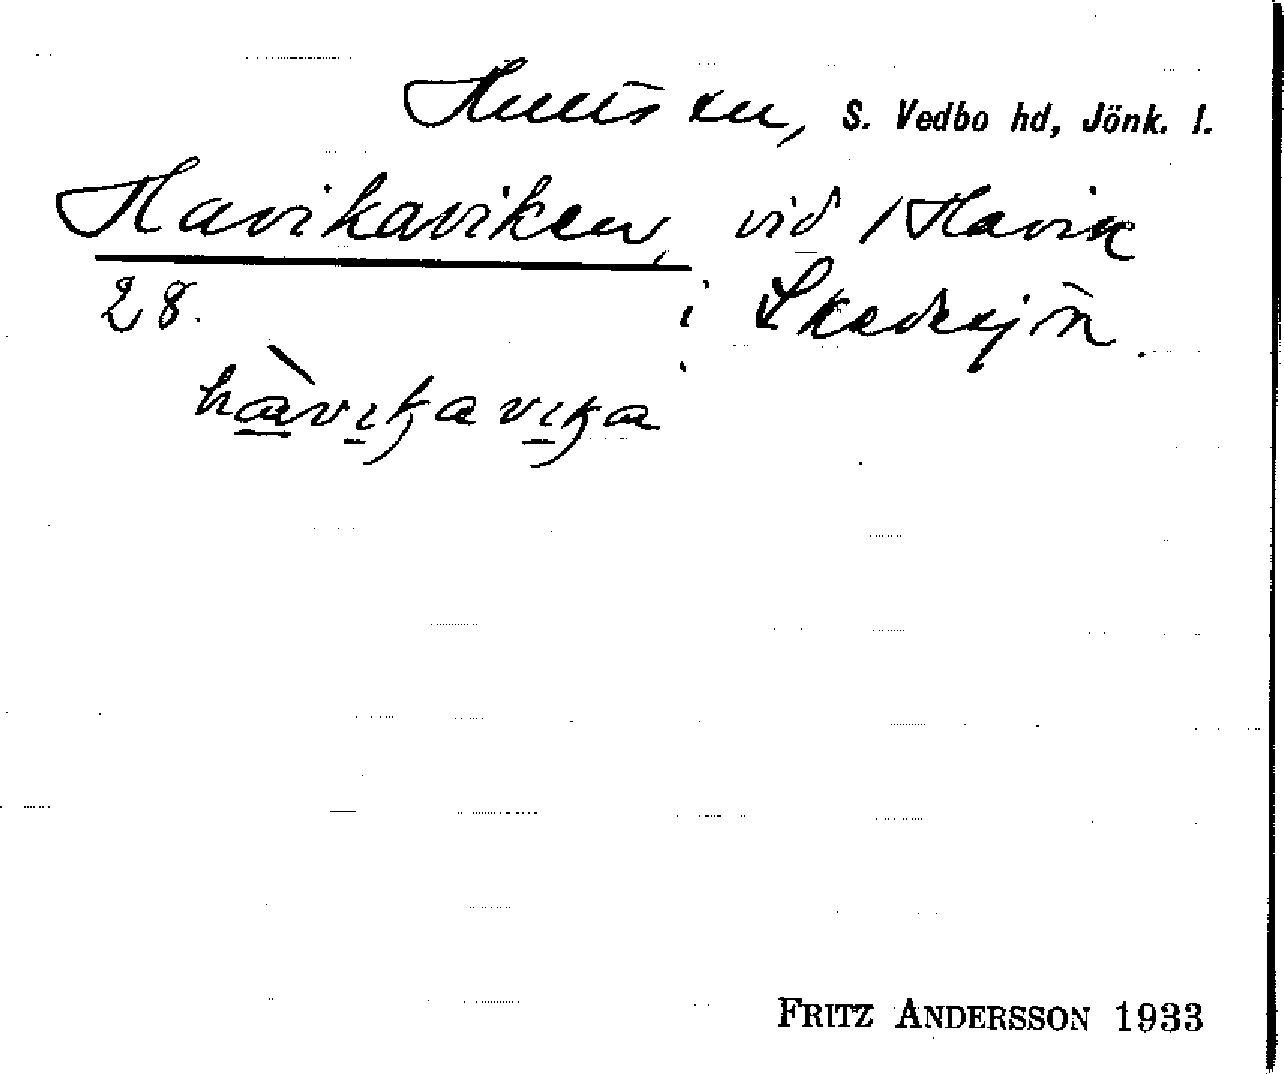 Hults sn, S. Vedbo hd, Jönk. l.
Havikaviken, vid / Havik
28. i Skedesjön.
hàvikavika
FRITZ ANDERSSON 1933